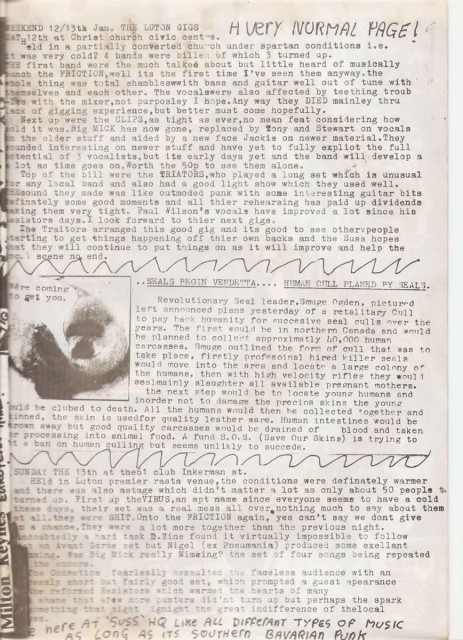 WEEKEND 12/13th Jan. THE LUTON GIGS
A VERY NORMAL PAGE!
SAT.12th at Christ church civic centre.
Held in a partially converted church under spartan conditions i.e.
it was very cold? 4 bands were billed of which 3 turned up.
first band were the much talked about but little heard of musically
the FRICTION,well its the first time I've seen them anyway.the
whole thing was total shambleswith bands and guitar well out of tune with
themselves and each other. The vocalswere also affected by teething troub
with the mixer,not purposley I hope.Any way they DIED mainley thru
lack of gigging experience,but better must come hopefully.
Next up were the CLIPS,as tight as ever,no mean feat considering how
cold it was.Big MICK has now gone, replaced by Tony and Stewart on vocals
on the older stuff and aided by a new face Jackie on newer material.They
sounded interesting on newer stuff and have yet to fully expliot the full
potential of 3 vocalists,but its early days yet and the band will develop a
lot as time goes on.Worth the 50p to see them alone.
Top of the bill were the TRIATORS,who played a long set which is unusual
for any local band and also had a good light show which they used well.
sound they made was like outmoded punk with some interesting guitar bits
definately some good moments and all thier rehearsing has paid up dividends
making them very tight. Paul Wilson's vocals have improved a lot since his
days.I look forward to thier next gigs.
The Traitors arranged this good gig and its good to see otherpeople
starting to get things happening off thier own backs and the Suss hopes
that they will continue to put things on as it will improve and help the
local scene no end.
..SEALS BEGIN VENDETTA.... HUMAN CULL PLANED BY SEALS.
We're coming
to get you.
Revolutionary Seal leader,Smuge Ogden, pictured
left announced plans yesterday of a retalitary Cull
to pay back humanity for succesive seal culls over the
years. The first would be in northern Canada and would
be planned to collect approximatly 40,000 human
carcasses. Smuge outlined the form of cull that was to
take place, firstly profesoinal hired killer seals
would move into the area and locate a large colony of
the humans, then with high velocity rifles they would
sealmainly slaughter all available pregnant mothers.
the next step would be to locate young humans and
inorder not to damage the precios skins the young
would be clubed to death. All the humans would then be collected together and
skinned, the skin is usedfor quality leather ware. Human intestines would be
thrown away but good quality carcasses would be drained of blood and taken
for processing into animal food. A fund S.O.S. (Save Our Skins) is trying to
a ban on human culling but seems unlikly to succede.
SUNDAY THE 13th at the61 club Inkerman st.
HELD in Luton premier rasta venue,the conditions were definately warmer
and there was also matage which didn't matter a lot as only about 50 people
turned up. First up theVIRUS,an apt name since everyone seems to have a cold
these days, their set was a real mess all over,nothing much to say about them
at all.they were SHIT.Onto the FRICTION again, yes can't say we dont give
a chance,They were a lot more together than the previous night.
hard task D.Zine found it virtually impossible to follow
but Nigel (ex Pneumania) produced some exellant
Was Big Mick really Mimeing? the set of four songs being repeated
fearlessly assaulted the faceless audience with an
short but fairly good set, which prompted a guest apearance
reformed Resistors which warmed the hearts of many
that a few more punters did'nt turn up but perhaps the spark
might ignight the great indifference of thelocal
Milton Keynes
We here AT 'SUSS' HQ LIKE ALL DIFFERANT TYPES OF MUSIC
AS LONG AS ITS SOUTHERN BAVARIAN PUNK